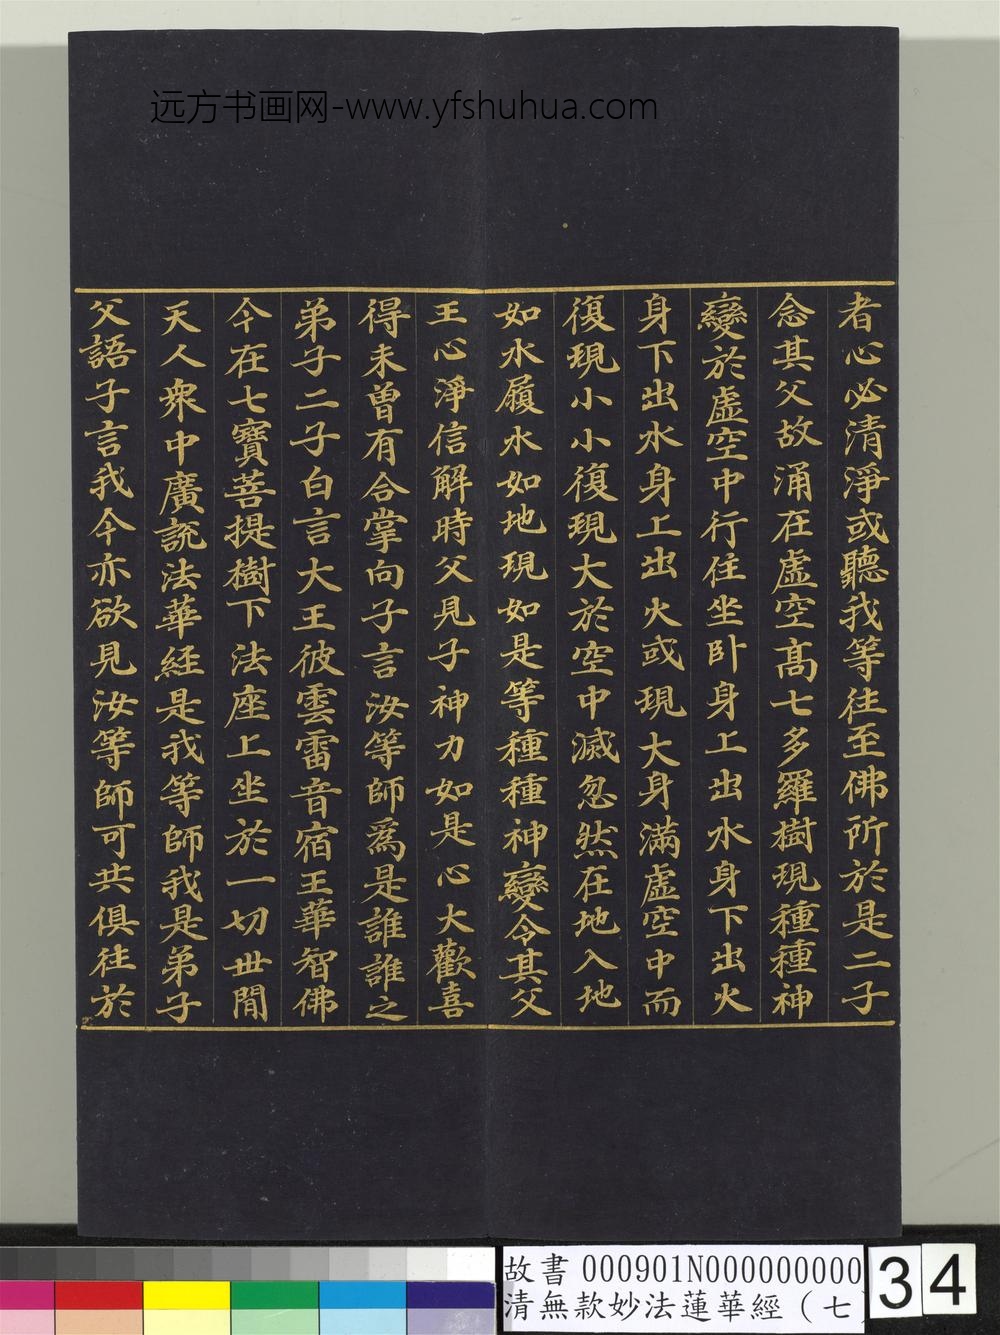 远方书画网-www.yfshuhua.com
者心必清淨或聽我等往至佛所於是二子
念其父故涌在虛空高七多羅樹現種種神
變於虛空中行住坐卧身上出水身下出火
身下出水身上出火或現大身滿虛空中而
復現小小復現大於空中滅忽然在地入地
如水履水如地現如是等種種神變令其父
王心淨信解時父見子神力如是心大歡喜
得未曾有合掌向子言汝等師爲是誰誰之
弟子二子白言大王彼雲雷音宿王華智佛
今在七寶菩提樹下法座上坐於一切世間
天人衆中廣說法華経是我等師我是弟子
父語子言我今亦欲見汝等師可共俱往於
故書 000901N000000000
清無款妙法蓮華經（七
34